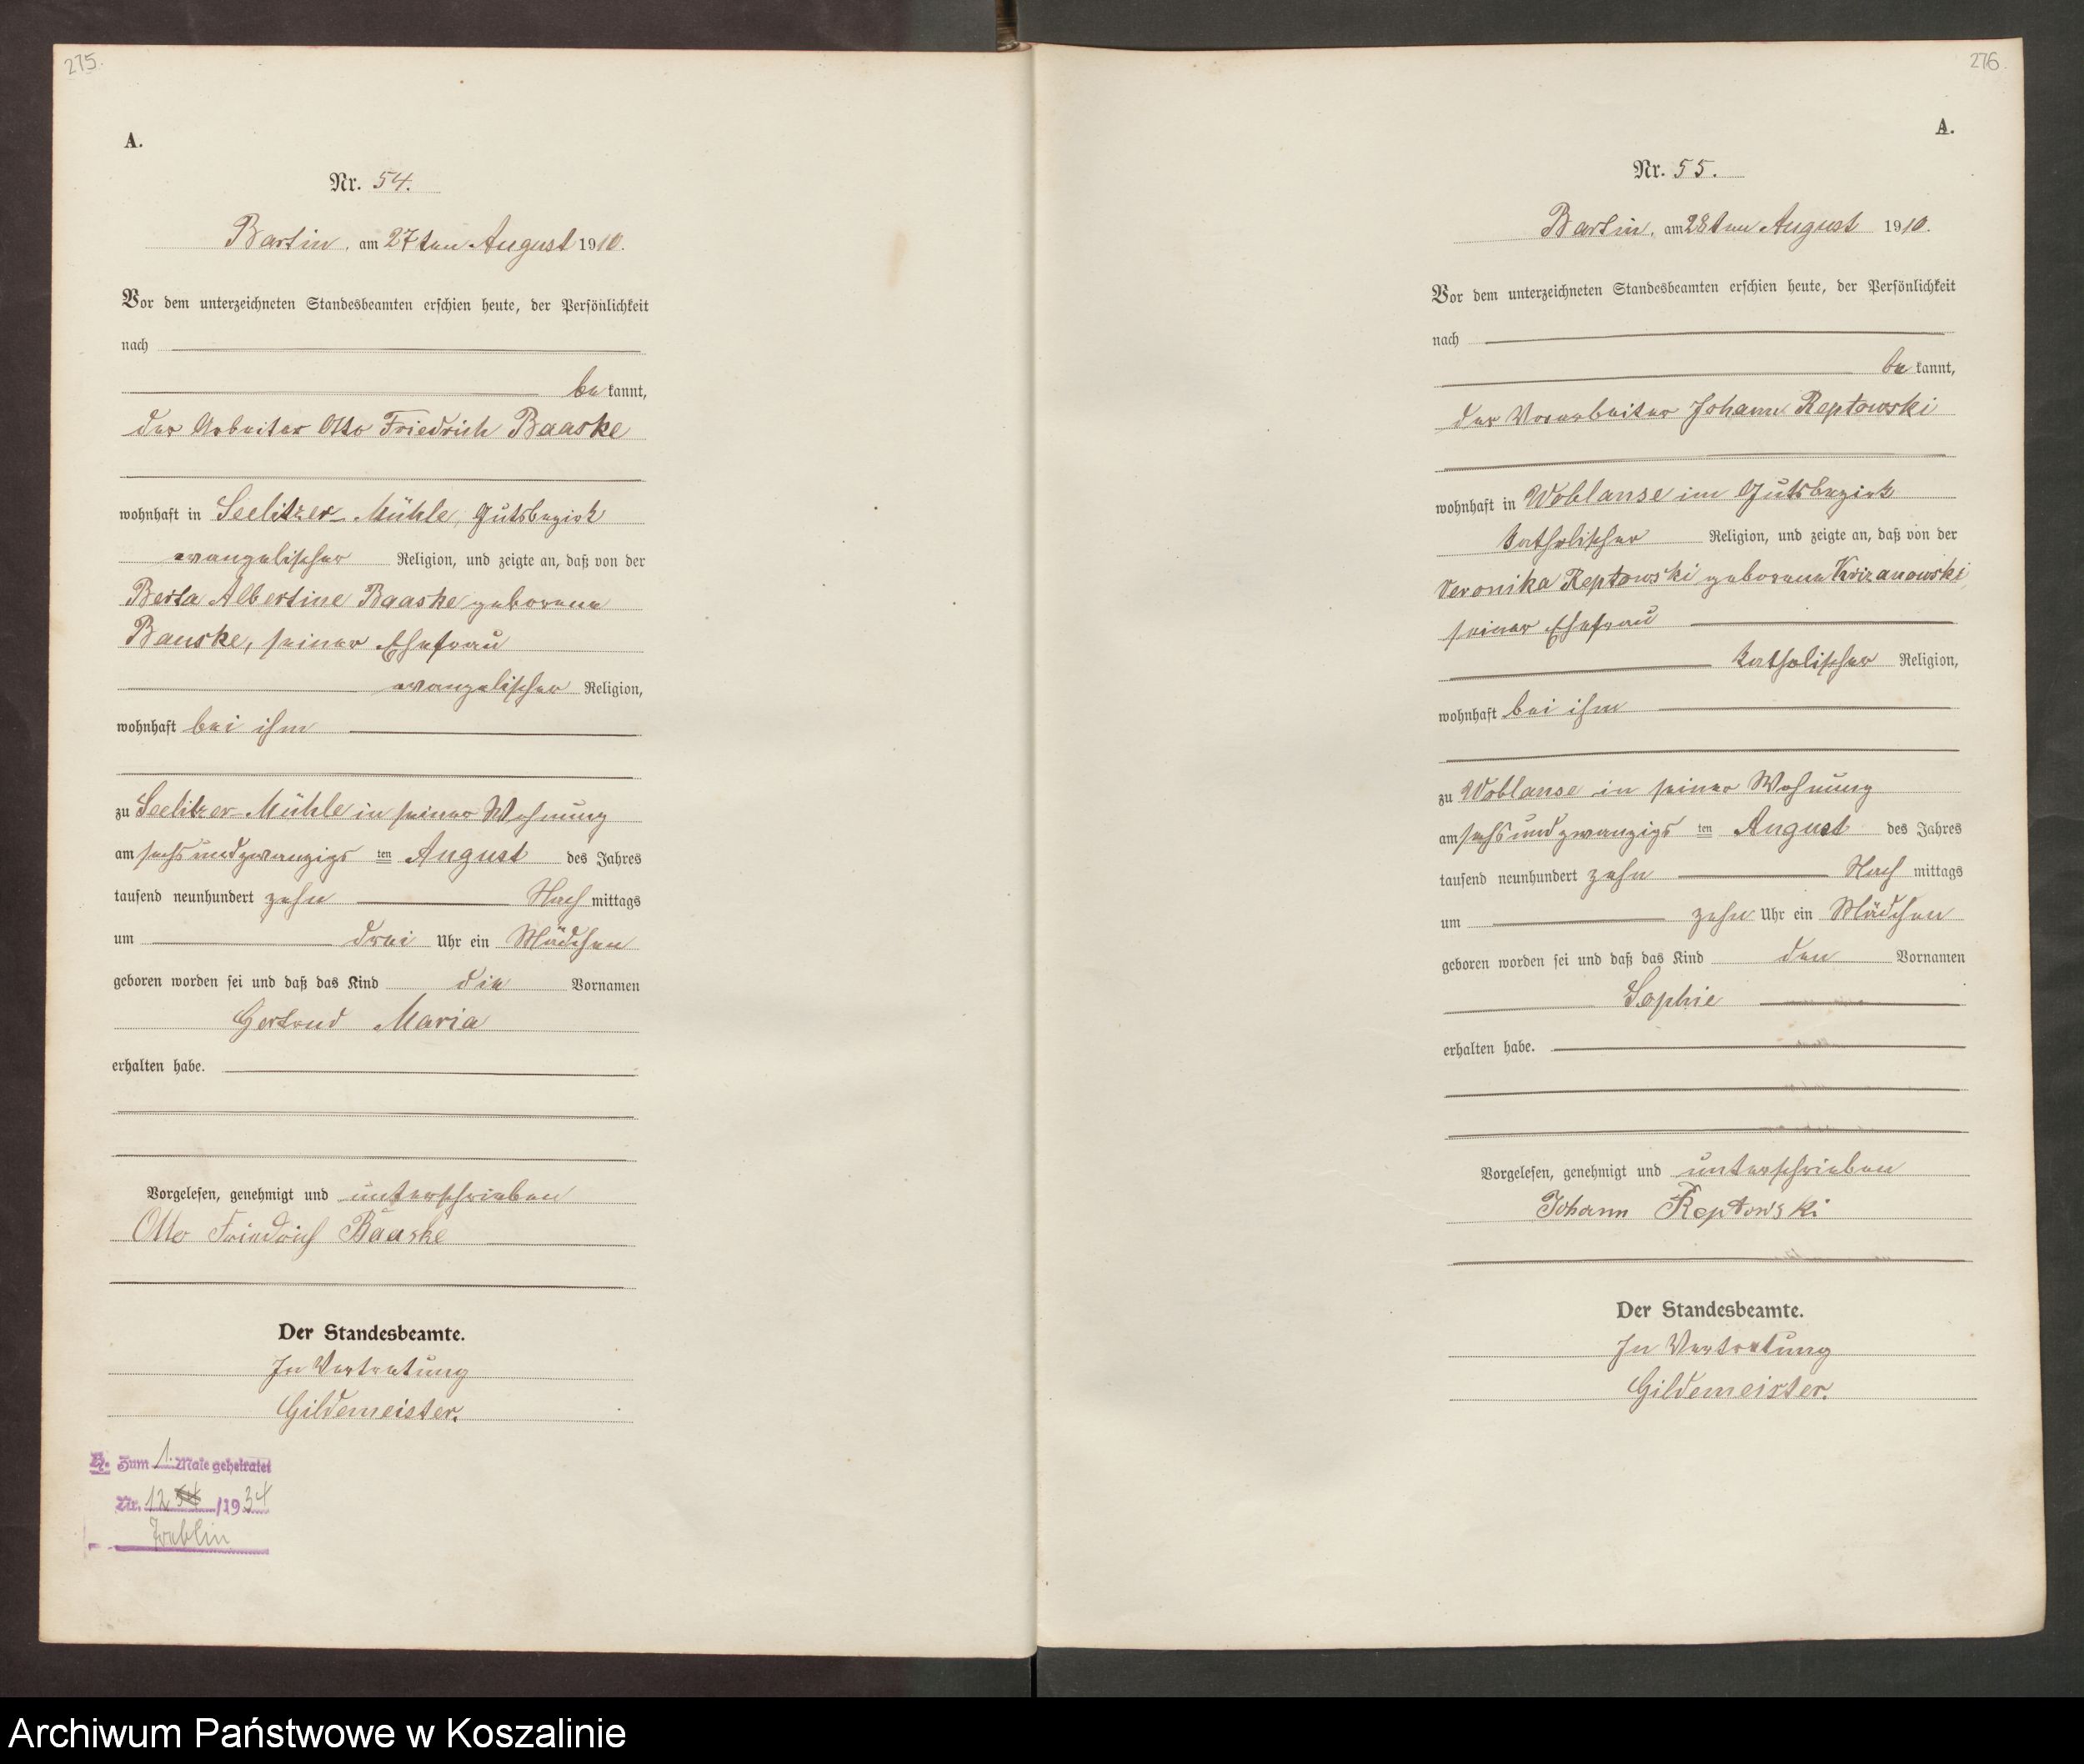 275.
A.
Nr. 54.
Bartin, am 27ten August 1910.
Vor dem unterzeichneten Standesbeamten erschien heute, der Persönlichkeit
nach
be kannt,
der Arbeiter Otto Friedrich Baaske
wohnhaft in Seelitzer-Mühle, Gutsbezirk
evangelischer Religion, und zeigte an, daß von der
Berta Albertine Baaske geborene
Bauske, seiner Ehefrau
evangelischer Religion,
wohnhaft bei ihm
zu Seelitzer-Mühle in seiner Wohnung
am sechsundzwanzigs ten August des Jahres
tausend neunhundert zehn Nach mittags
um drei Uhr ein Mädchen
geboren worden sei und daß das Kind die Vornamen
Gertrud Maria
erhalten habe.
Vorgelesen, genehmigt und unterschrieben
Otto Friedrich Baaske
Der Standesbeamte.
In Vertretung
Gildemeister.
H. Zum 1. Male geheiratet
Nr. 12 /1934
276.
A.
Nr. 55.
Bartin, am 28ten August 1910.
Vor dem unterzeichneten Standesbeamten erschien heute, der Persönlichkeit
nach
be kannt,
der Vorarbeiter Johann Reptowski
wohnhaft in Woblanse im Gutsbezirk
katholischer Religion, und zeigte an, daß von der
Veronika Reptowski geborene Krizanowski,
seiner Ehefrau
katholischer Religion,
wohnhaft bei ihm
zu Woblanse in seiner Wohnung
am sechsundzwanzigs ten August des Jahres
tausend neunhundert zehn Nach mittags
um zehn Uhr ein Mädchen
geboren worden sei und daß das Kind den Vornamen
Sophie
erhalten habe.
Vorgelesen, genehmigt und unterschrieben
Johann Reptowski
Der Standesbeamte.
In Vertretung
Gildemeister.
Archiwum Państwowe w Koszalinie